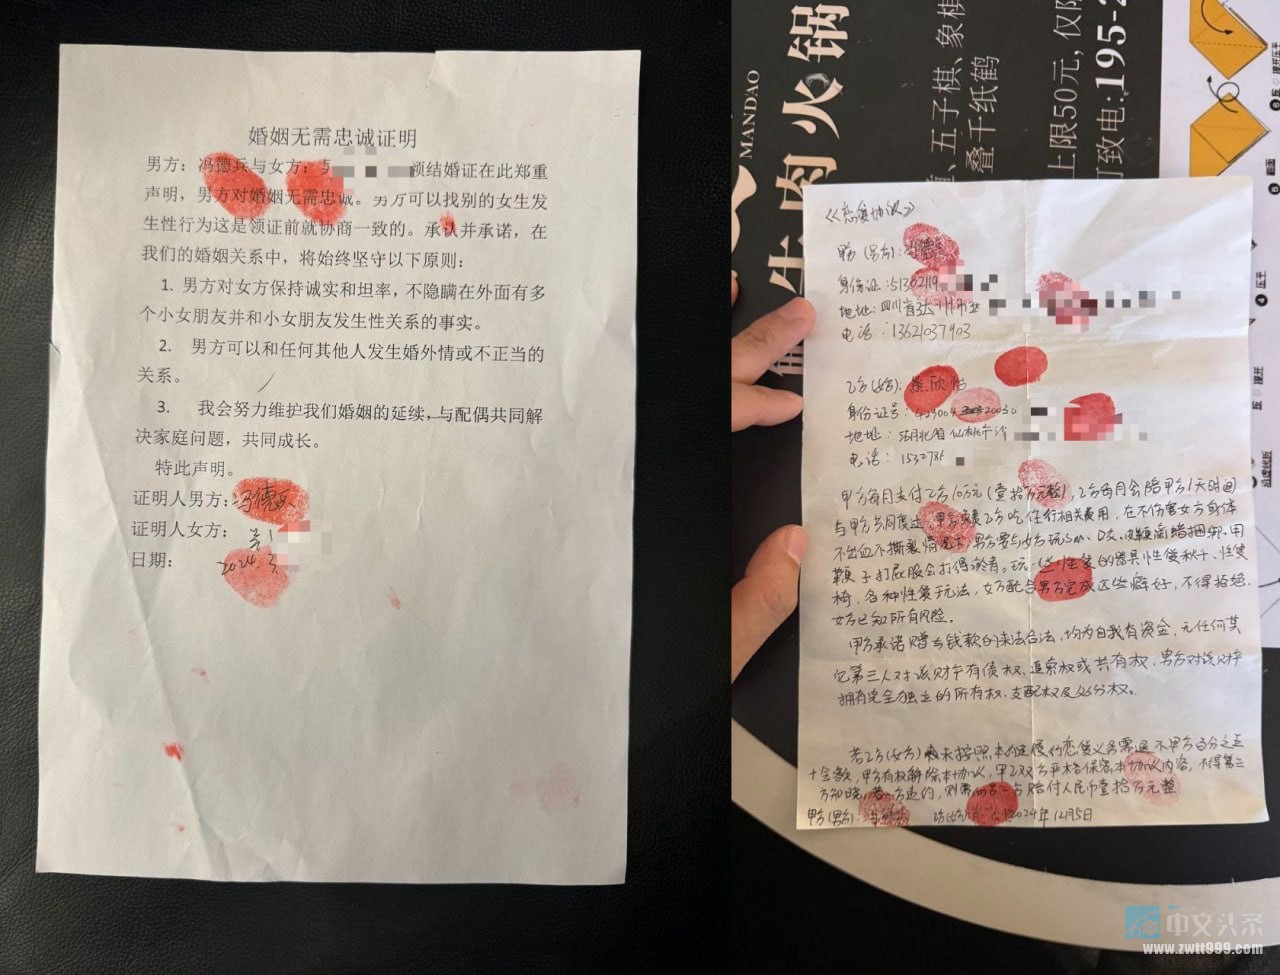 婚姻无需忠诚证明
男方：冯德兵与女方：领结婚证在此郑重
声明，男方对婚姻无需忠诚。男方可以找别的女生发
生性行为这是领证前就协商一致的。承认并承诺，在
我们的婚姻关系中，将始终坚守以下原则：
1. 男方对女方保持诚实和坦率，不隐瞒在外面有多
个小女朋友并和小女朋友发生性关系的事实。
2. 男方可以和任何其他人发生婚外情或不正当的
关系。
3. 我会努力维护我们婚姻的延续，与配偶共同解
决家庭问题，共同成长。
特此声明。
证明人男方：冯德兵
证明人女方：
日期：2024
《恋爱协议》
甲方（男方）：冯德兵
身份证：51302119
地址：四川省达州市
电话：13621037903
乙方（女方）：欣怡
身份证号：429004 20030
地址：湖北省仙桃市沙
电话：153278
甲方每月支付乙方10万元（壹拾万元整），乙方每月会陪甲方1天时间
与甲方共同度过，甲方负责乙方吃住行相关费用，在不伤害女方身体
不出血不撕裂情况下，男方要与女方玩sm、口交、皮鞭滴蜡捆绑、用
鞭子打屁股会打得淤青。玩一些性爱的器具性爱秋千、性爱
椅、各种性爱玩法，女方配合男方完成这些癖好，不得拒绝，
女方已知所有风险。
甲方承诺赠与钱款的来法合法，均为自我有资金，无任何其
它第三人对该财产有债权、追索权或共有权，男方对该财产
拥有完全独立的所有权、支配权及处分权。
若乙方（女方）未按照本约定履行恋爱义务需退还甲方百分之五
十金额，甲方有权解除本协议，甲乙双方严格保密本协议内容，不得第三
方知晓，若一方违约，则需向另一方赔付人民币壹拾万元整
甲方（男方）：冯德兵 2024年12月5日
MANDAO
生肉火锅
五子棋、象棋
叠千纸鹤
上限50元，仅限
可致电:195-2
中文头条
www.zwtt999.com